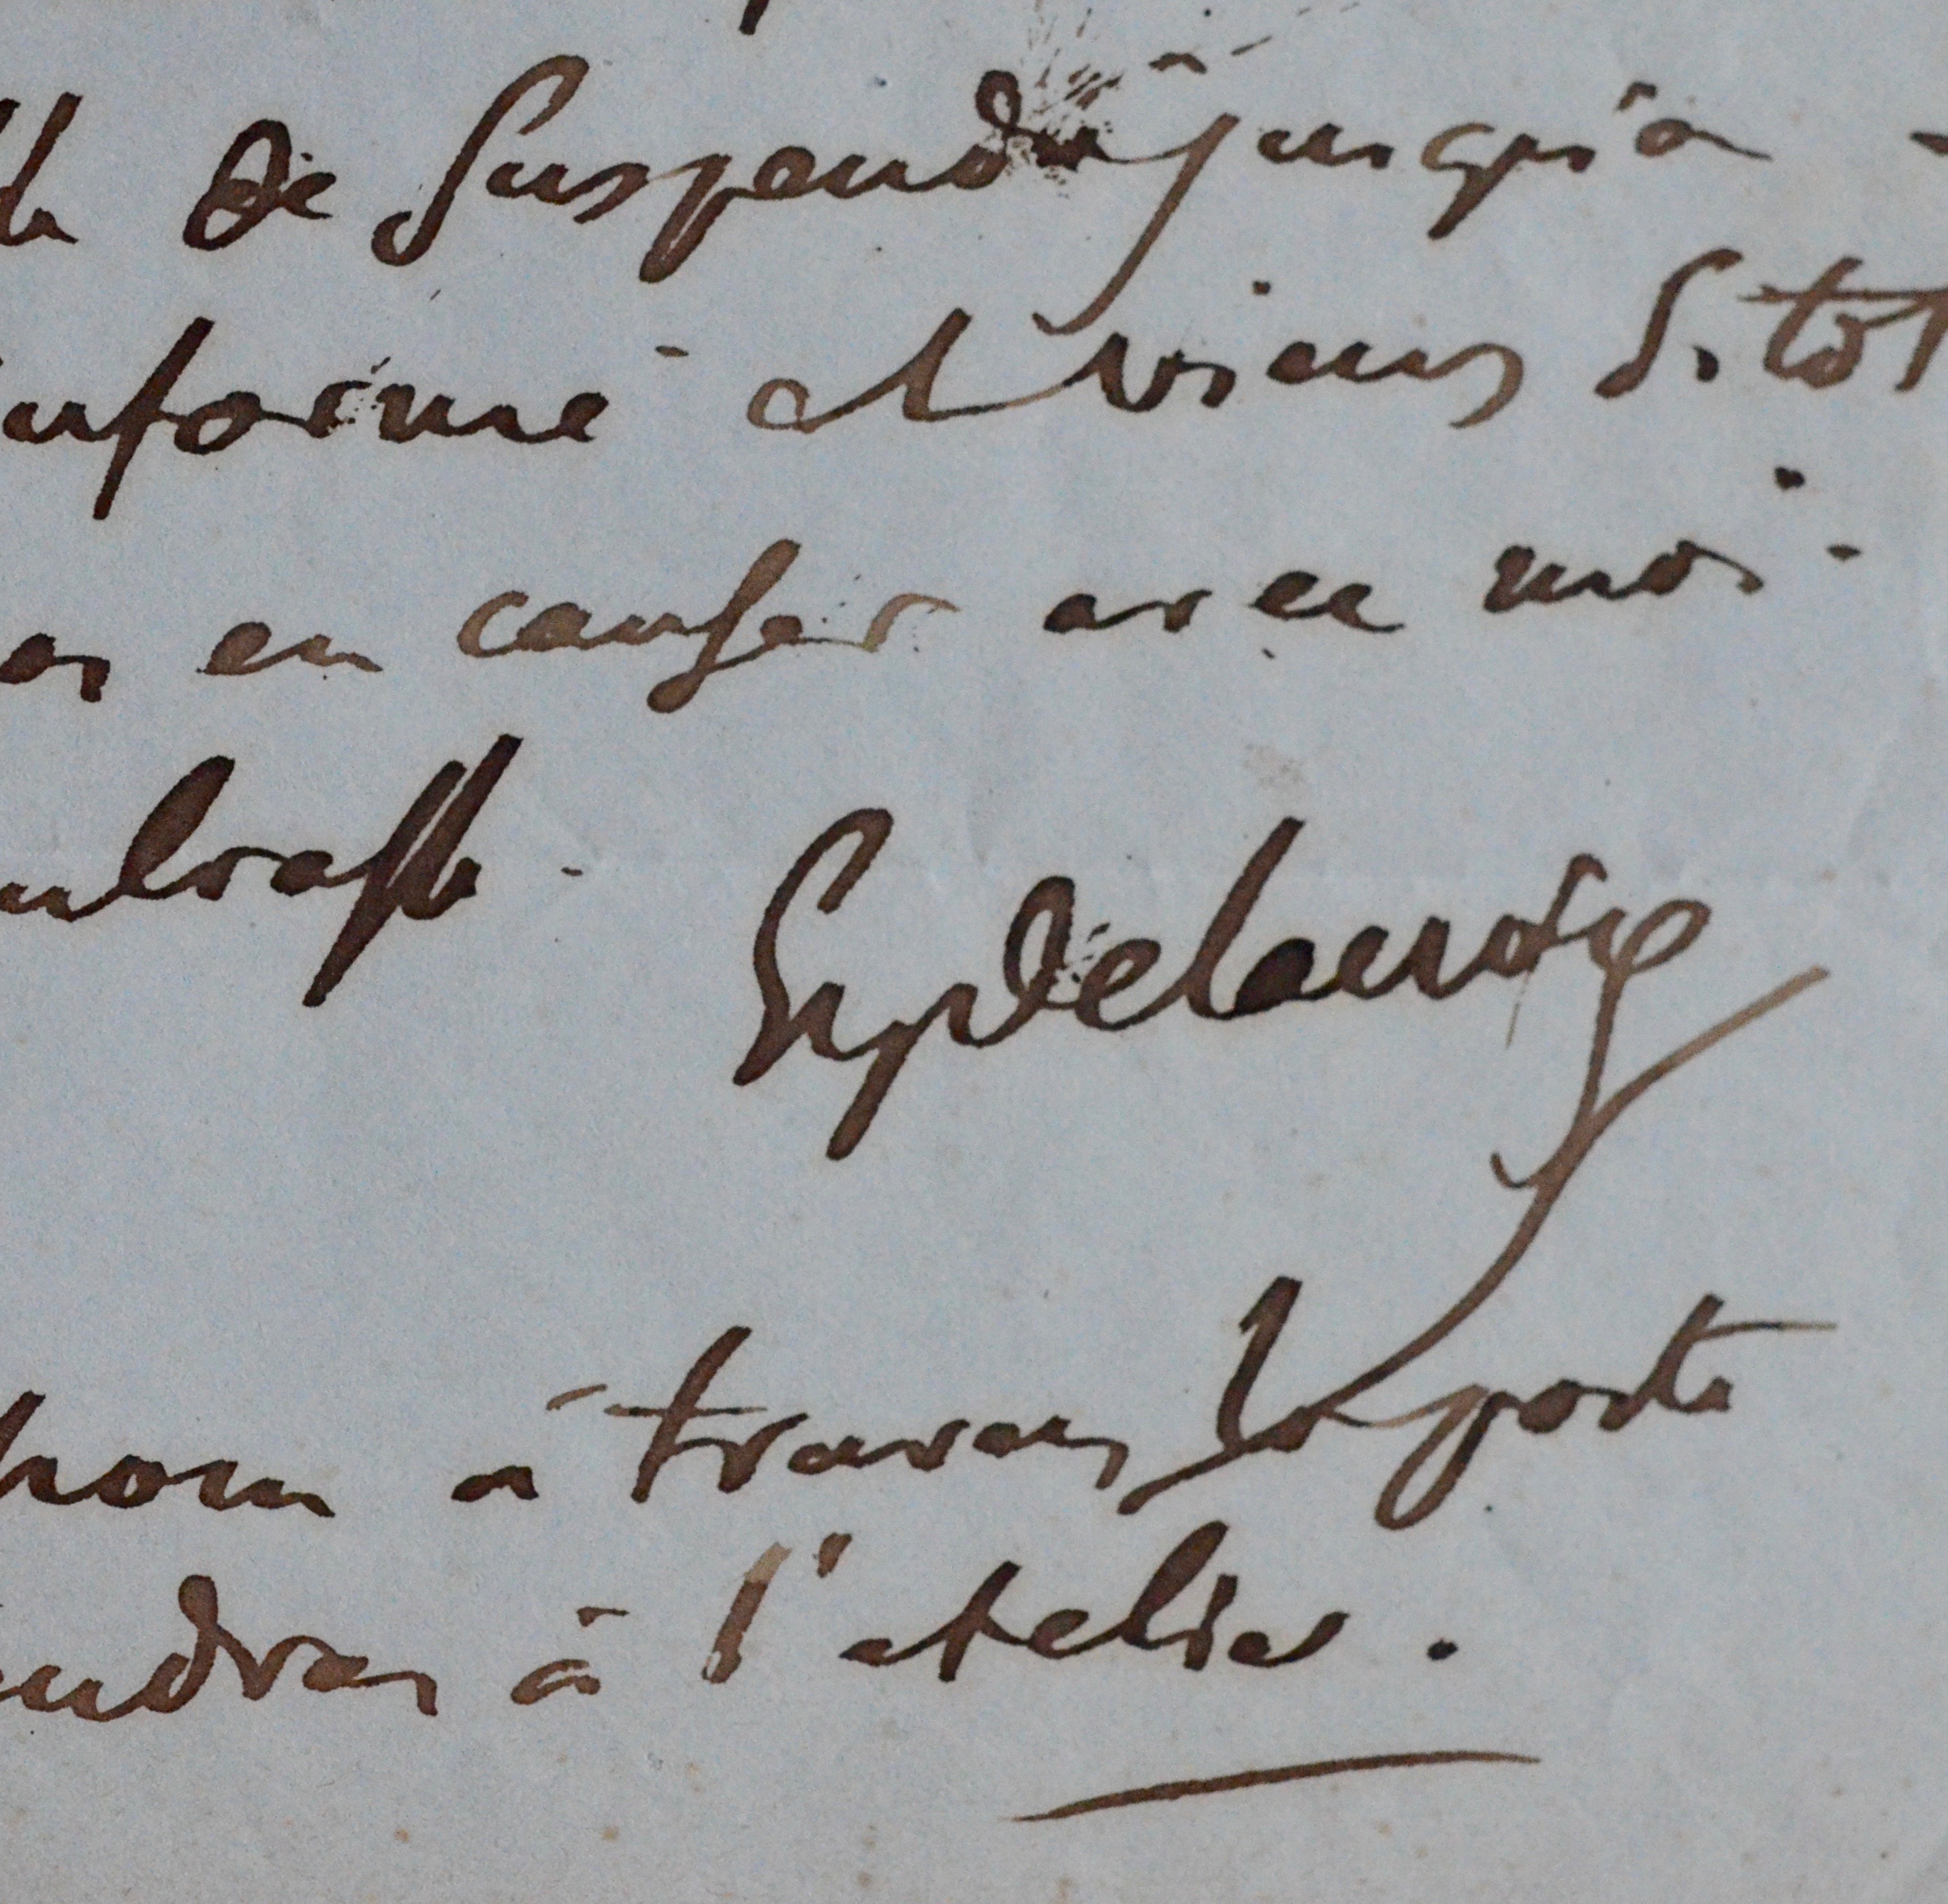 de suspendre jusqu'à
informé et viens sitot
en causer avec moi.
embrasse.
Eug Delacroix
nom à travers la porte
viendras à l'atelier.